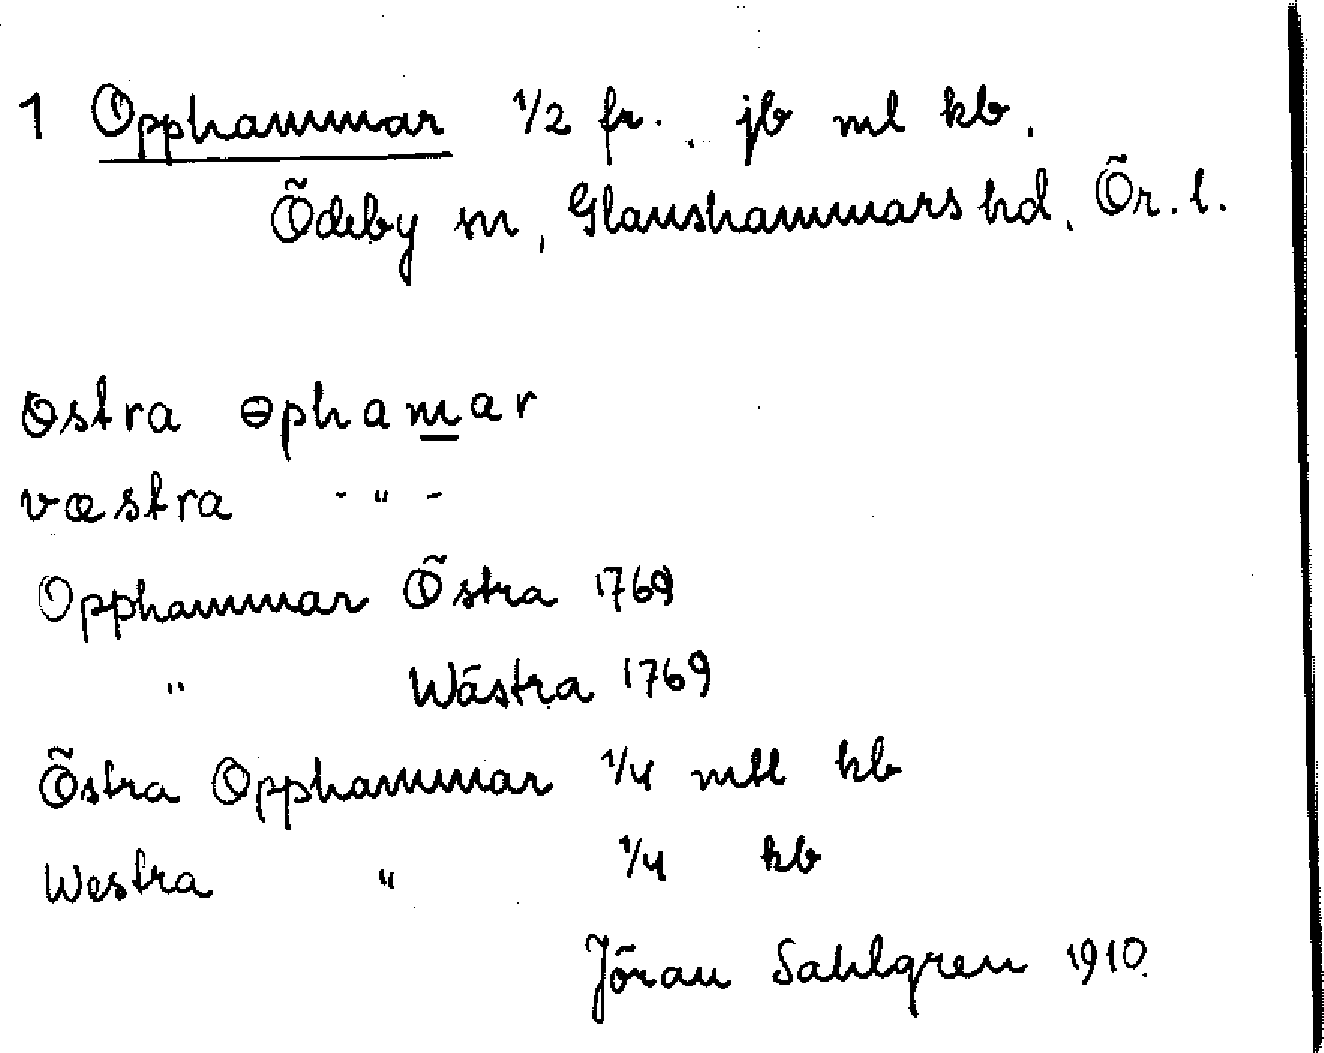 1 Opphammar 1/2 fr. jb ml kb.
Ödeby sn, Glanshammars hd, Ör. l.
östra ɵphamar
væstra - " -
Opphammar Östra 1769
" Wästra 1769
Östra Opphammar 1/4 mtl kb
Westra " 1/4 kb
Jöran Sahlgren 1910.